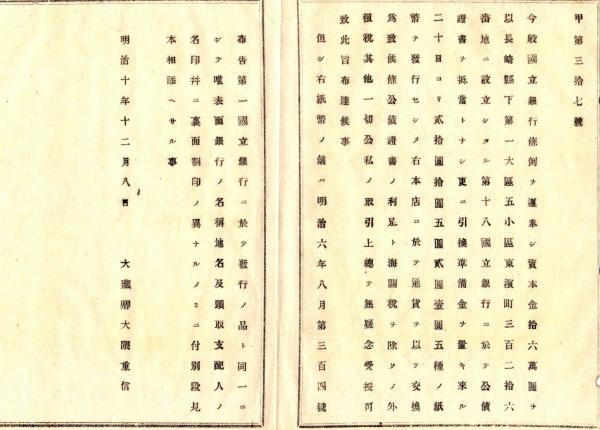 甲第三拾七號
今般國立銀行條例ヲ遵奉シ資本金拾六萬圓ヲ
以長崎縣下第一大區五小區東濱町三百二拾六
番地ニ設立シタル第十八國立銀行ニ於テ公債
證書ヲ抵當トナシ更ニ引換準備金ヲ置キ來ル
二十日ヨリ貳拾圓拾圓五圓貳圓壹圓五種ノ紙
幣ヲ發行セシメ右本店ニ於テ通貨ヲ以テ交換
爲致候條公債證書ノ利足ト海關稅ヲ除クノ外
租稅其他一切公私ノ取引上總テ無疑念受授可
致此旨布達候事
但シ右紙幣ノ儀ハ明治六年八月第三百四號
布告第一國立銀行ニ於テ發行ノ品ト同一ニ
シテ唯表面銀行ノ名稱地名及頭取支配人ノ
名印幷ニ裏面割印ノ異ナルノミニ付別段見
本相添ヘサル事
明治十年十二月八日
大藏卿大隈重信